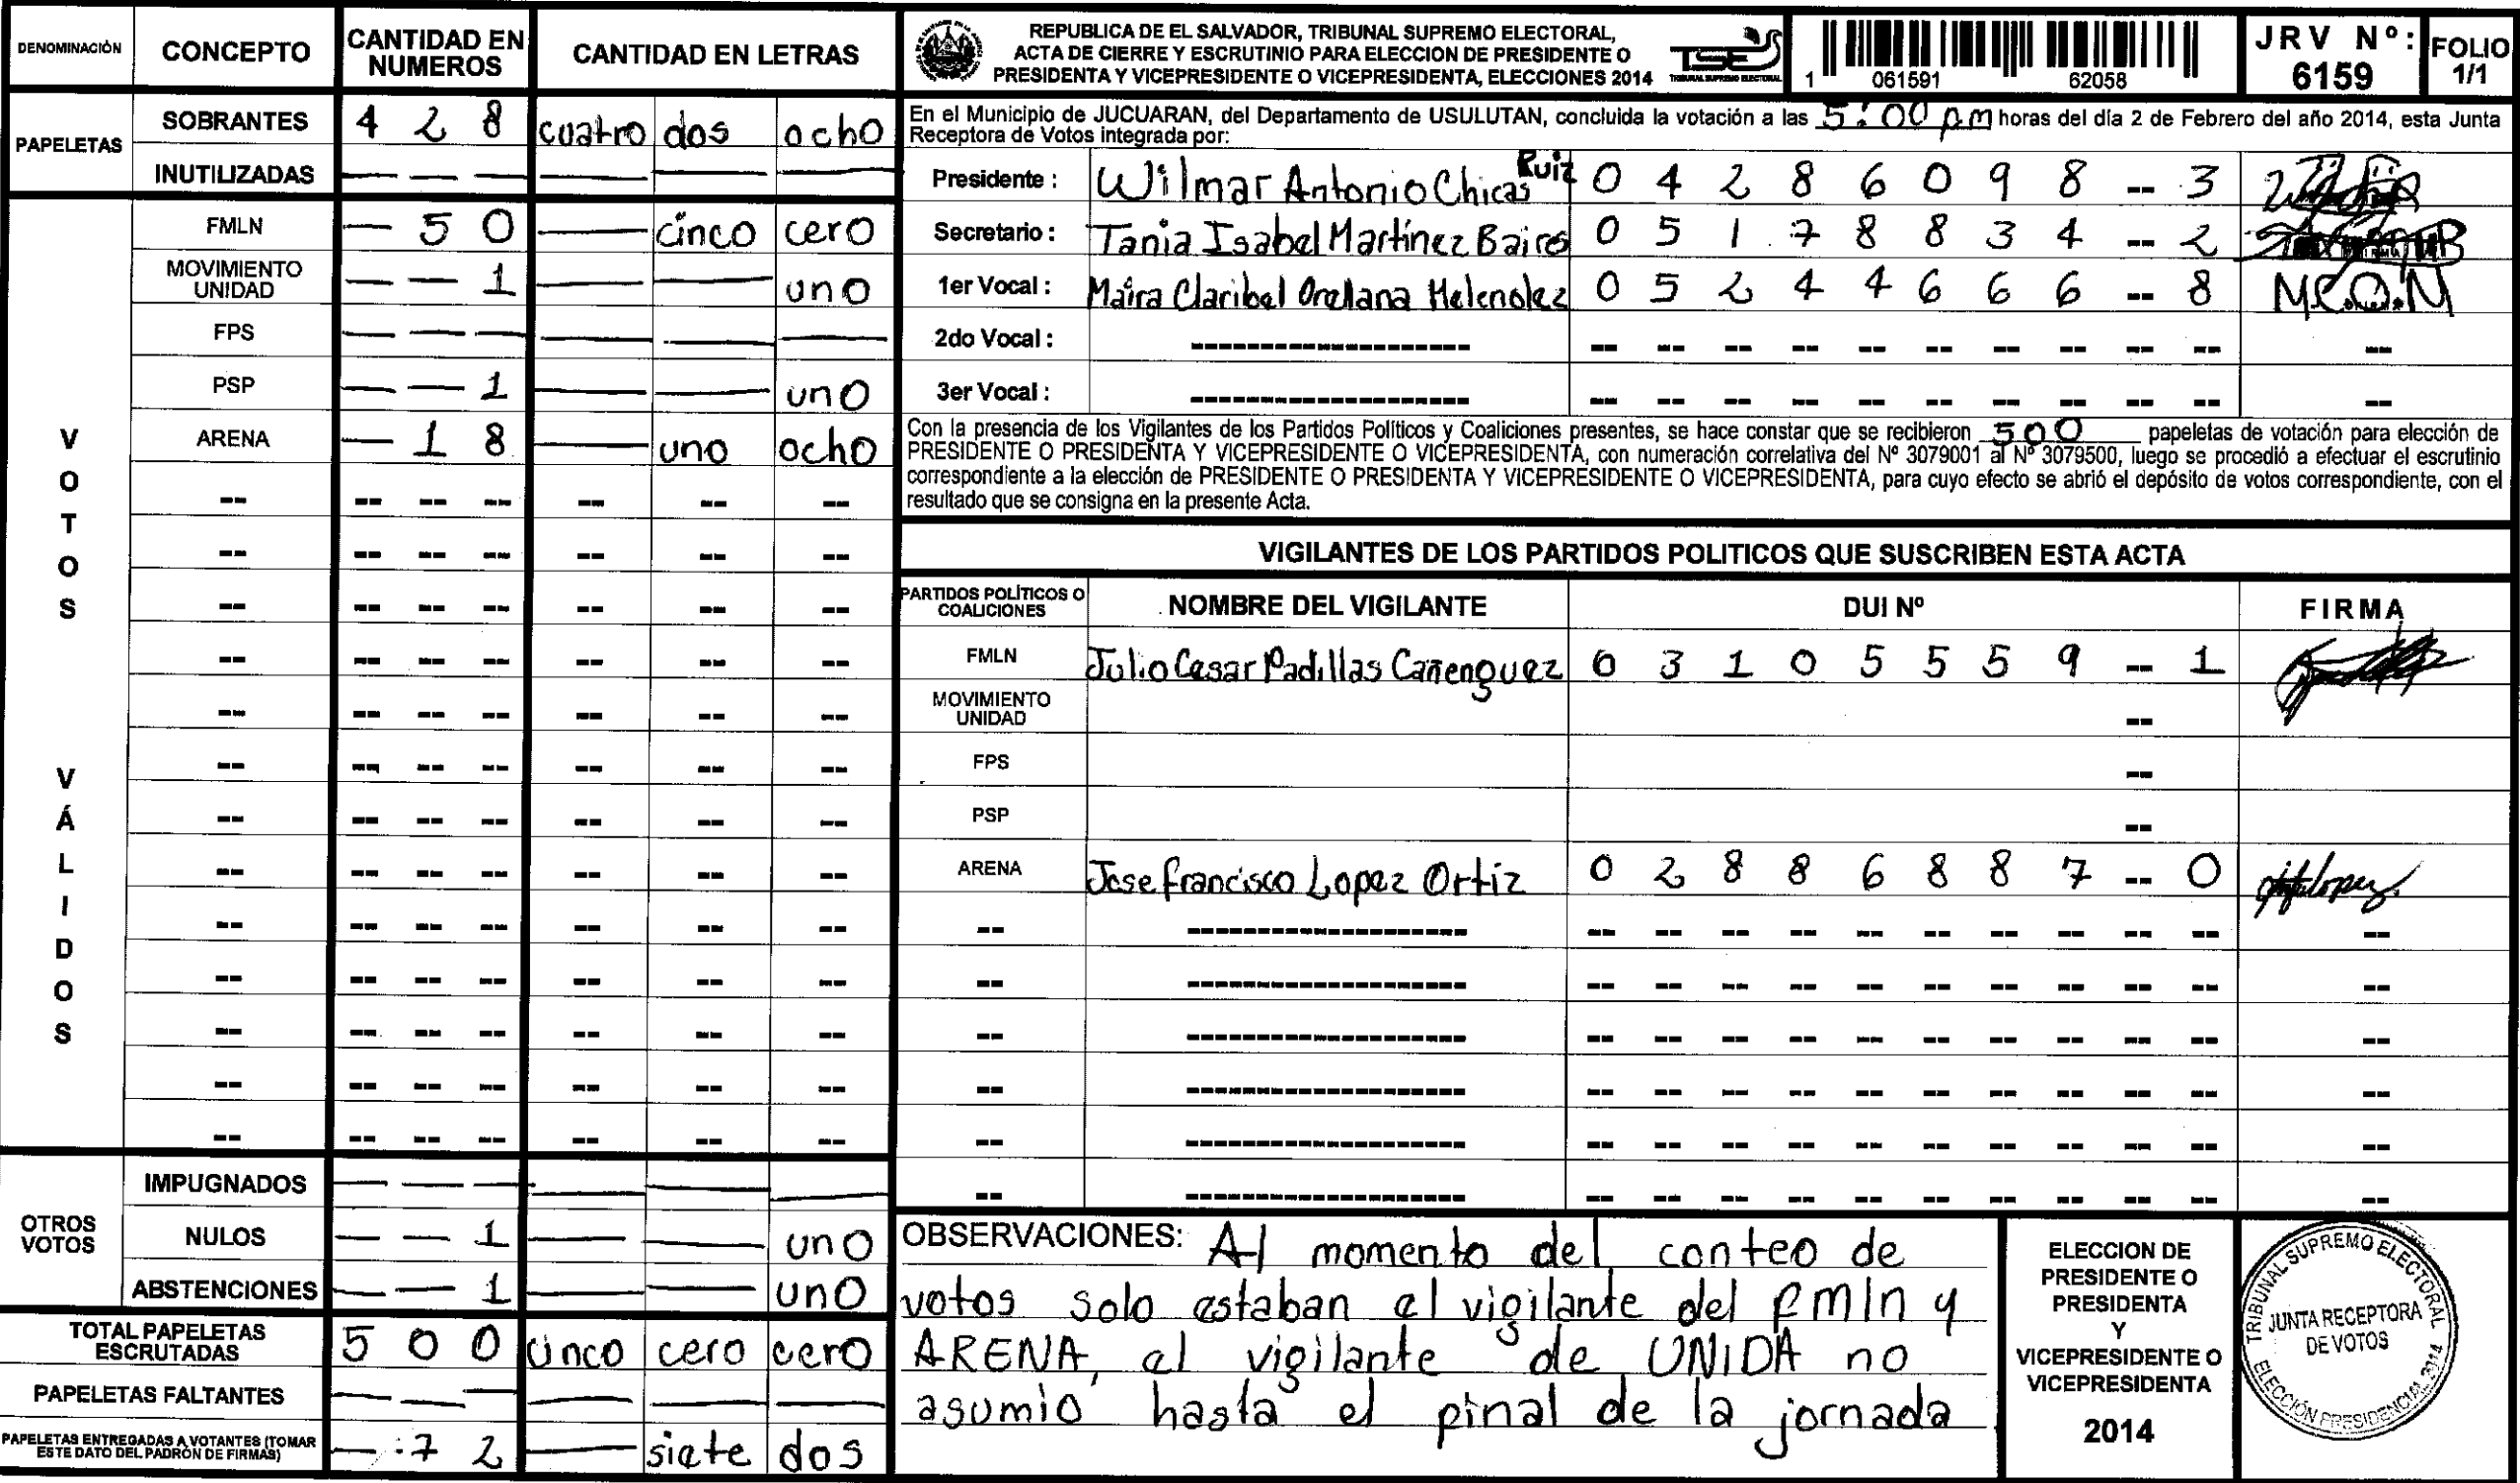 DENOMINACIÓN CONCEPTO CANTIDAD EN NUMEROS CANTIDAD EN LETRAS
PAPELETAS
SOBRANTES 4 2 8 cuatro dos ocho
INUTILIZADAS — — — — — —
VOTOS VÁLIDOS
FMLN — 5 0 — cinco cero
MOVIMIENTO UNIDAD — — 1 — — uno
FPS — — — — — —
PSP — — 1 — — uno
ARENA — 1 8 — uno ocho
-- -- -- -- -- -- --
-- -- -- -- -- -- --
-- -- -- -- -- -- --
-- -- -- -- -- -- --
-- -- -- -- -- -- --
-- -- -- -- -- -- --
-- -- -- -- -- -- --
-- -- -- -- -- -- --
-- -- -- -- -- -- --
-- -- -- -- -- -- --
-- -- -- -- -- -- --
-- -- -- -- -- -- --
-- -- -- -- -- -- --
OTROS VOTOS
IMPUGNADOS — — — — — —
NULOS — — 1 — — uno
ABSTENCIONES — — 1 — — uno
TOTAL PAPELETAS ESCRUTADAS 5 0 0 cinco cero cero
PAPELETAS FALTANTES — — — — — —
PAPELETAS ENTREGADAS A VOTANTES (TOMAR
ESTE DATO DEL PADRÓN DE FIRMAS) — 7 2 — siete dos
REPUBLICA DE EL SALVADOR, TRIBUNAL SUPREMO ELECTORAL,
ACTA DE CIERRE Y ESCRUTINIO PARA ELECCION DE PRESIDENTE O
PRESIDENTA Y VICEPRESIDENTE O VICEPRESIDENTA, ELECCIONES 2014
TSE
TRIBUNAL SUPREMO ELECTORAL
1 061591 62058
JRV Nº: 6159
FOLIO 1/1
En el Municipio de JUCUARAN, del Departamento de USULUTAN, concluida la votación a las 5:00 pm horas del día 2 de Febrero del año 2014, esta Junta
Receptora de Votos integrada por:
Presidente : Wilmar Antonio Chicas Ruiz 0 4 2 8 6 0 9 8 -- 3
Secretario : Tania Isabel Martínez Baires 0 5 1 7 8 8 3 4 -- 2
1er Vocal : Maira Claribel Orellana Melendez 0 5 2 4 4 6 6 6 -- 8 M.C.O.M
2do Vocal : -------------------- -- -- -- -- -- -- -- -- -- -- --
3er Vocal : -------------------- -- -- -- -- -- -- -- -- -- -- --
Con la presencia de los Vigilantes de los Partidos Políticos y Coaliciones presentes, se hace constar que se recibieron 500 papeletas de votación para elección de
PRESIDENTE O PRESIDENTA Y VICEPRESIDENTE O VICEPRESIDENTA, con numeración correlativa del Nº 3079001 al Nº 3079500, luego se procedió a efectuar el escrutinio
correspondiente a la elección de PRESIDENTE O PRESIDENTA Y VICEPRESIDENTE O VICEPRESIDENTA, para cuyo efecto se abrió el depósito de votos correspondiente, con el
resultado que se consigna en la presente Acta.
VIGILANTES DE LOS PARTIDOS POLITICOS QUE SUSCRIBEN ESTA ACTA
PARTIDOS POLÍTICOS O COALICIONES NOMBRE DEL VIGILANTE DUI Nº FIRMA
FMLN Julio Cesar Padillas Cañenguez 0 3 1 0 5 5 5 9 -- 1
MOVIMIENTO UNIDAD --
FPS --
PSP --
ARENA Jose francisco Lopez Ortiz 0 2 8 8 6 8 8 7 -- 0
-- -------------------- -- -- -- -- -- -- -- -- -- -- --
-- -------------------- -- -- -- -- -- -- -- -- -- -- --
-- -------------------- -- -- -- -- -- -- -- -- -- -- --
-- -------------------- -- -- -- -- -- -- -- -- -- -- --
-- -------------------- -- -- -- -- -- -- -- -- -- -- --
-- -------------------- -- -- -- -- -- -- -- -- -- -- --
OBSERVACIONES: Al momento del conteo de
votos solo estaban el vigilante del fmln y
ARENA, el vigilante de UNIDA no
asumio hasta el pinal de la jornada
ELECCION DE
PRESIDENTE O
PRESIDENTA
Y
VICEPRESIDENTE O
VICEPRESIDENTA
2014
TRIBUNAL SUPREMO ELECTORAL
JUNTA RECEPTORA
DE VOTOS
ELECCIÓN PRESIDENCIAL 2014